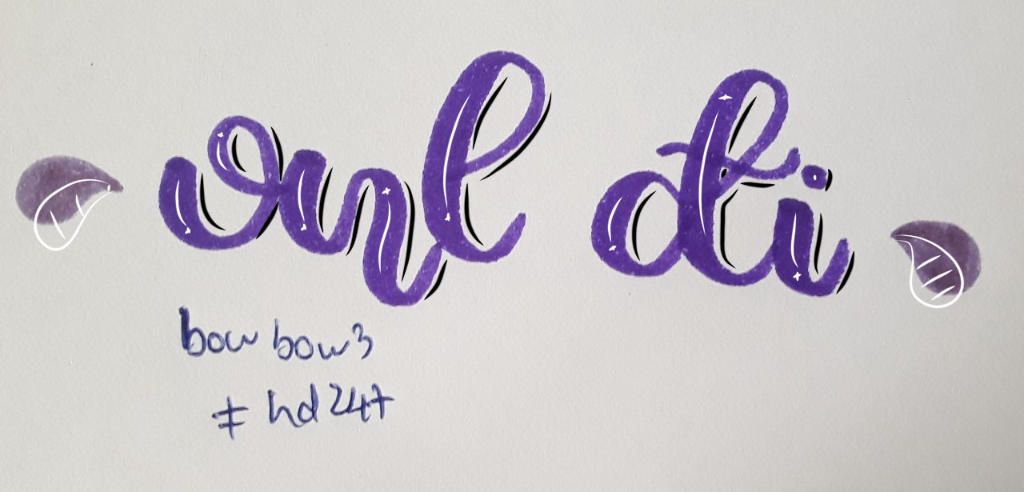 vnl đi
bow bow3
≠ hd247